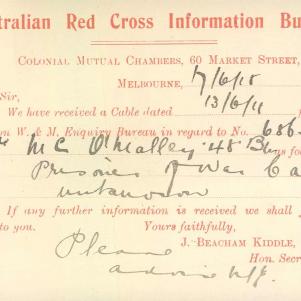 tralian Red Cross Information Bu
COLONIAL MUTUAL CHAMBERS, 60 MARKET STREET,
MELBOURNE, 17/6/18
Sir,
We have received a Cable dated 13/6/
on W. & M. Enquiry Bureau in regard to No. 686
Mc O'Malley 48 Bn
Prisoner of War Ca
unknown
If any further information is received we shall
to you. Yours faithfully,
Please J. BEACHAM KIDDLE,
advise Hon. Secr